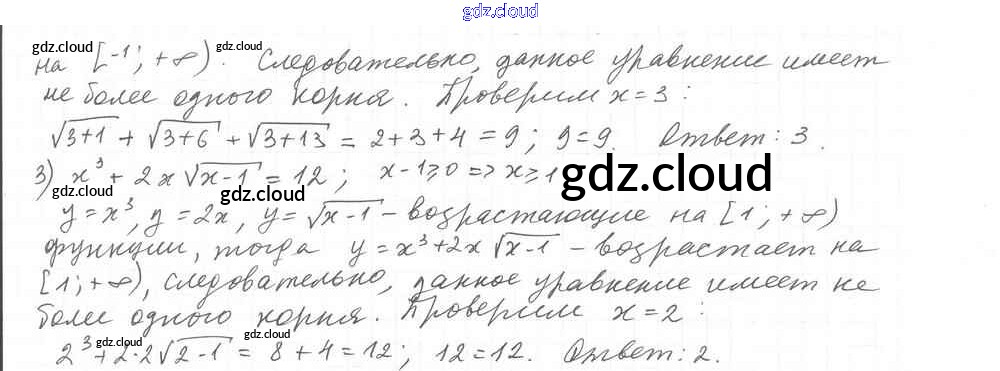 gdz.cloud
на [-1; +∞). Следовательно, данное уравнение имеет
не более одного корня. Проверим x=3:
√(3+1) + √(3+6) + √(3+13) = 2+3+4 = 9; 9=9. Ответ: 3.
3) x³ + 2x√(x-1) = 12; x-1≥0 => x≥1
y=x³, y=2x, y=√(x-1) - возрастающие на [1; +∞)
функции, тогда y=x³+2x√(x-1) - возрастает на
[1; +∞), следовательно, данное уравнение имеет не
более одного корня. Проверим x=2:
2³+2·2√(2-1) = 8+4=12; 12=12. Ответ: 2.
gdz.cloud
gdz.cloud
gdz.cloud
gdz.cloud
gdz.cloud
gdz.cloud
gdz.cloud
gdz.cloud